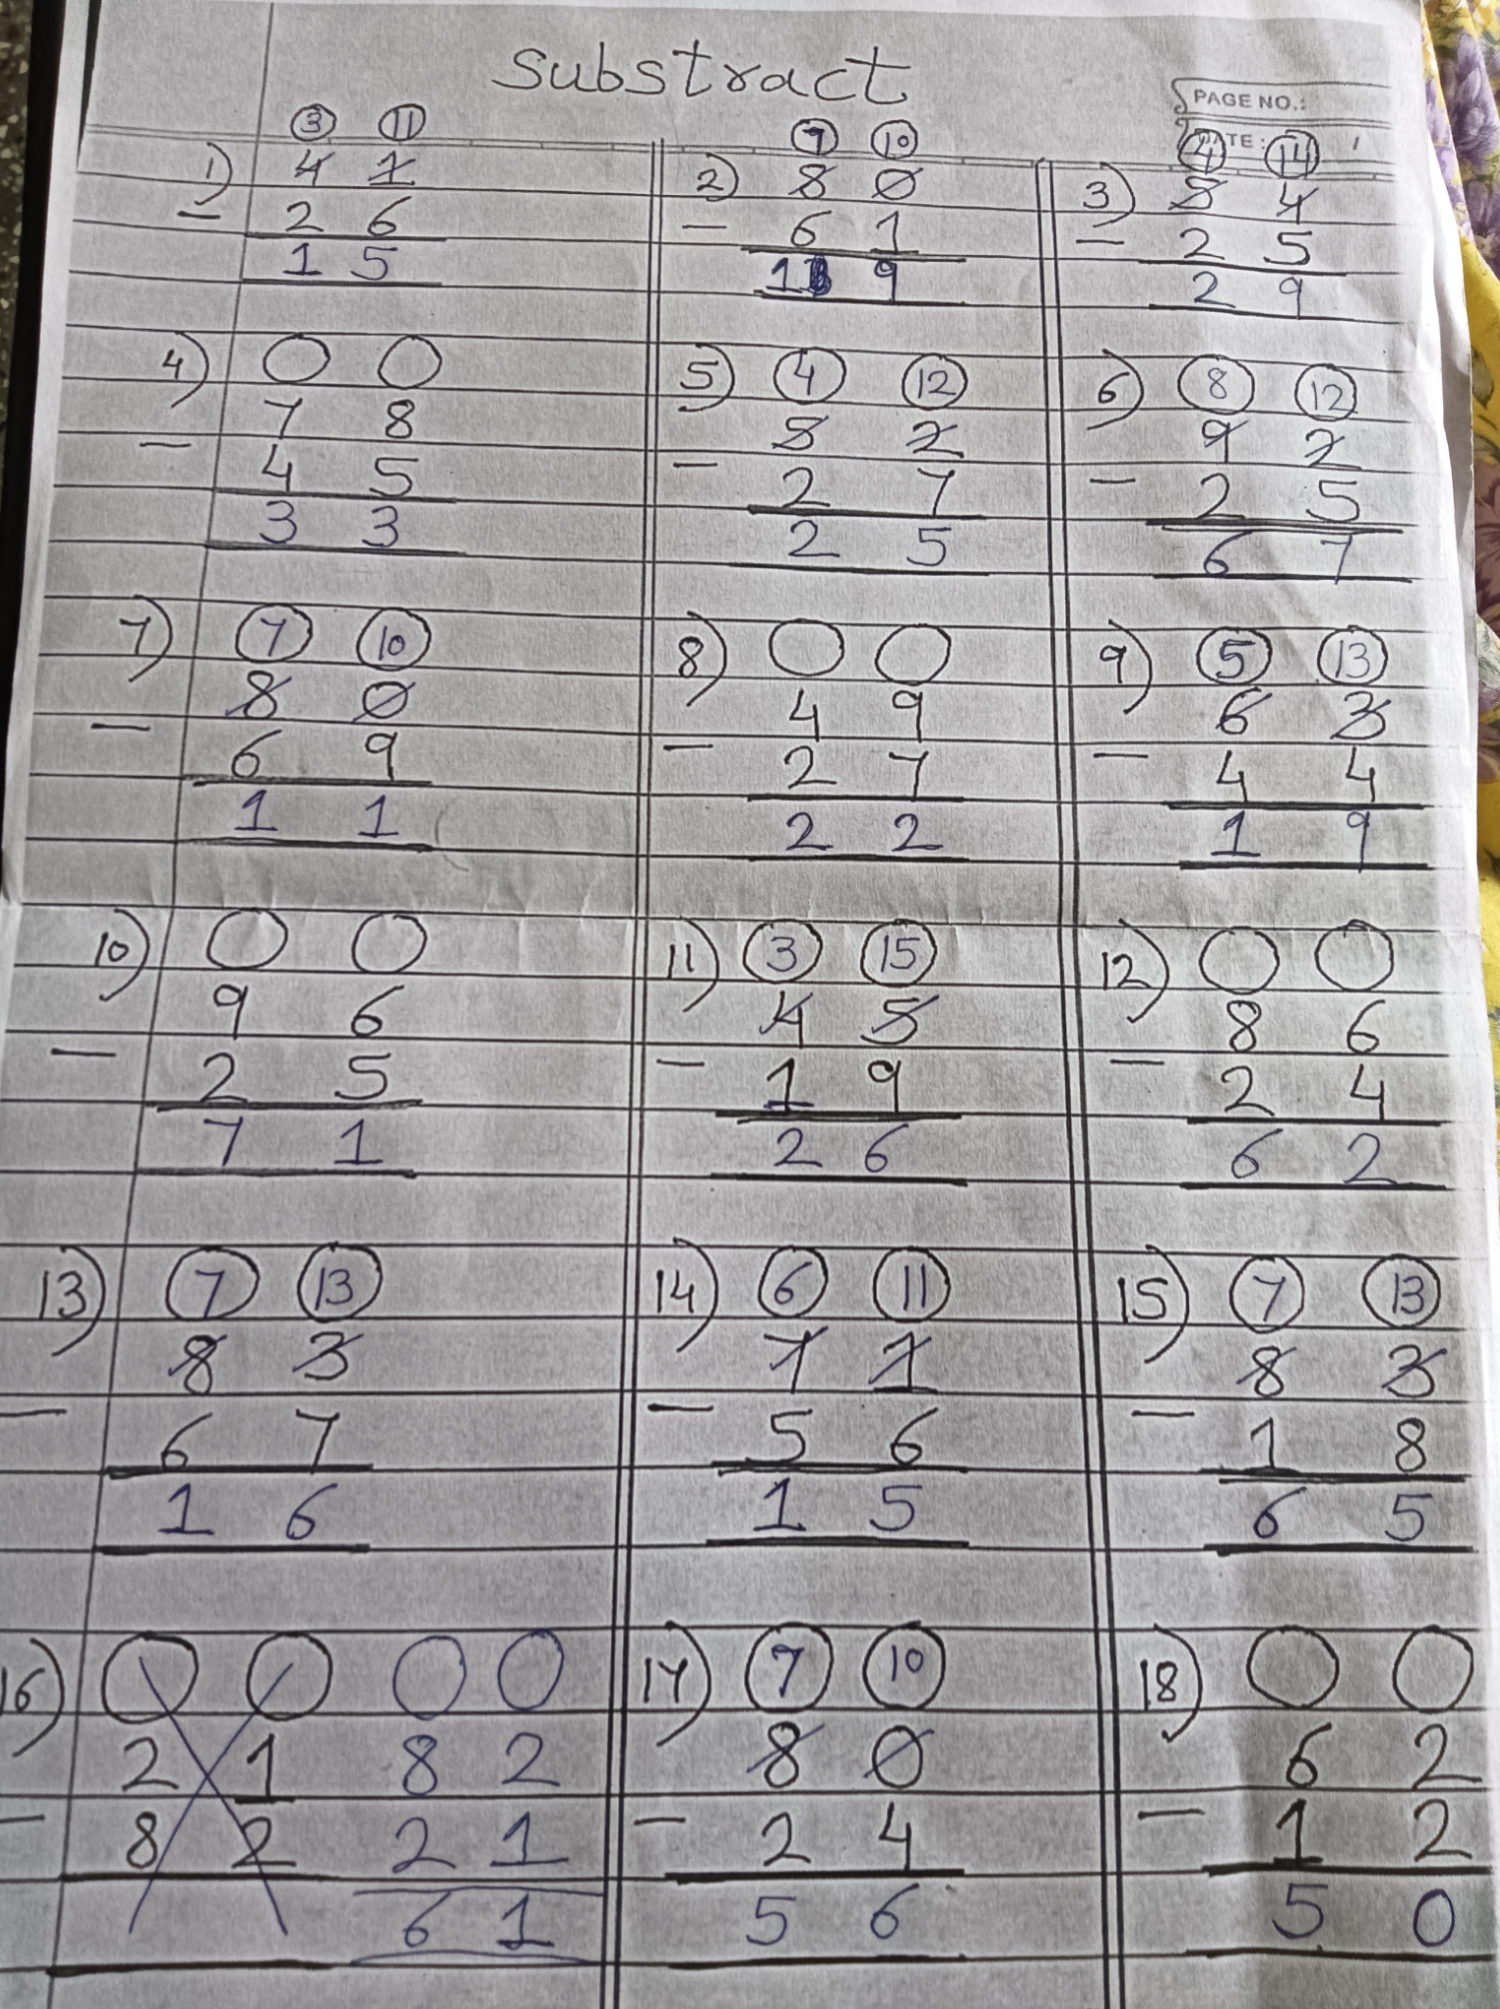 Substract
PAGE NO.:
DATE: /
3 11 7 10 4 14
1) 4 1 2) 8 0 3) 5 4
- 2 6 - 6 1 - 2 5
1 5 1 9 2 9
4) 5) 4 12 6) 8 12
7 8 5 2 9 2
- 4 5 - 2 7 - 2 5
3 3 2 5 6 7
7) 7 10 8) 9) 5 13
8 0 4 9 6 3
- 6 9 - 2 7 - 4 4
1 1 2 2 1 9
10) 11) 3 15 12)
9 6 4 5 8 6
- 2 5 - 1 9 - 2 4
7 1 2 6 6 2
13) 7 13 14) 6 11 15) 7 13
8 3 7 1 8 3
- 6 7 - 5 6 - 1 8
1 6 1 5 6 5
16) 17) 7 10 18)
2 1 8 2 8 0 6 2
- 8 2 2 1 - 2 4 - 1 2
6 1 5 6 5 0